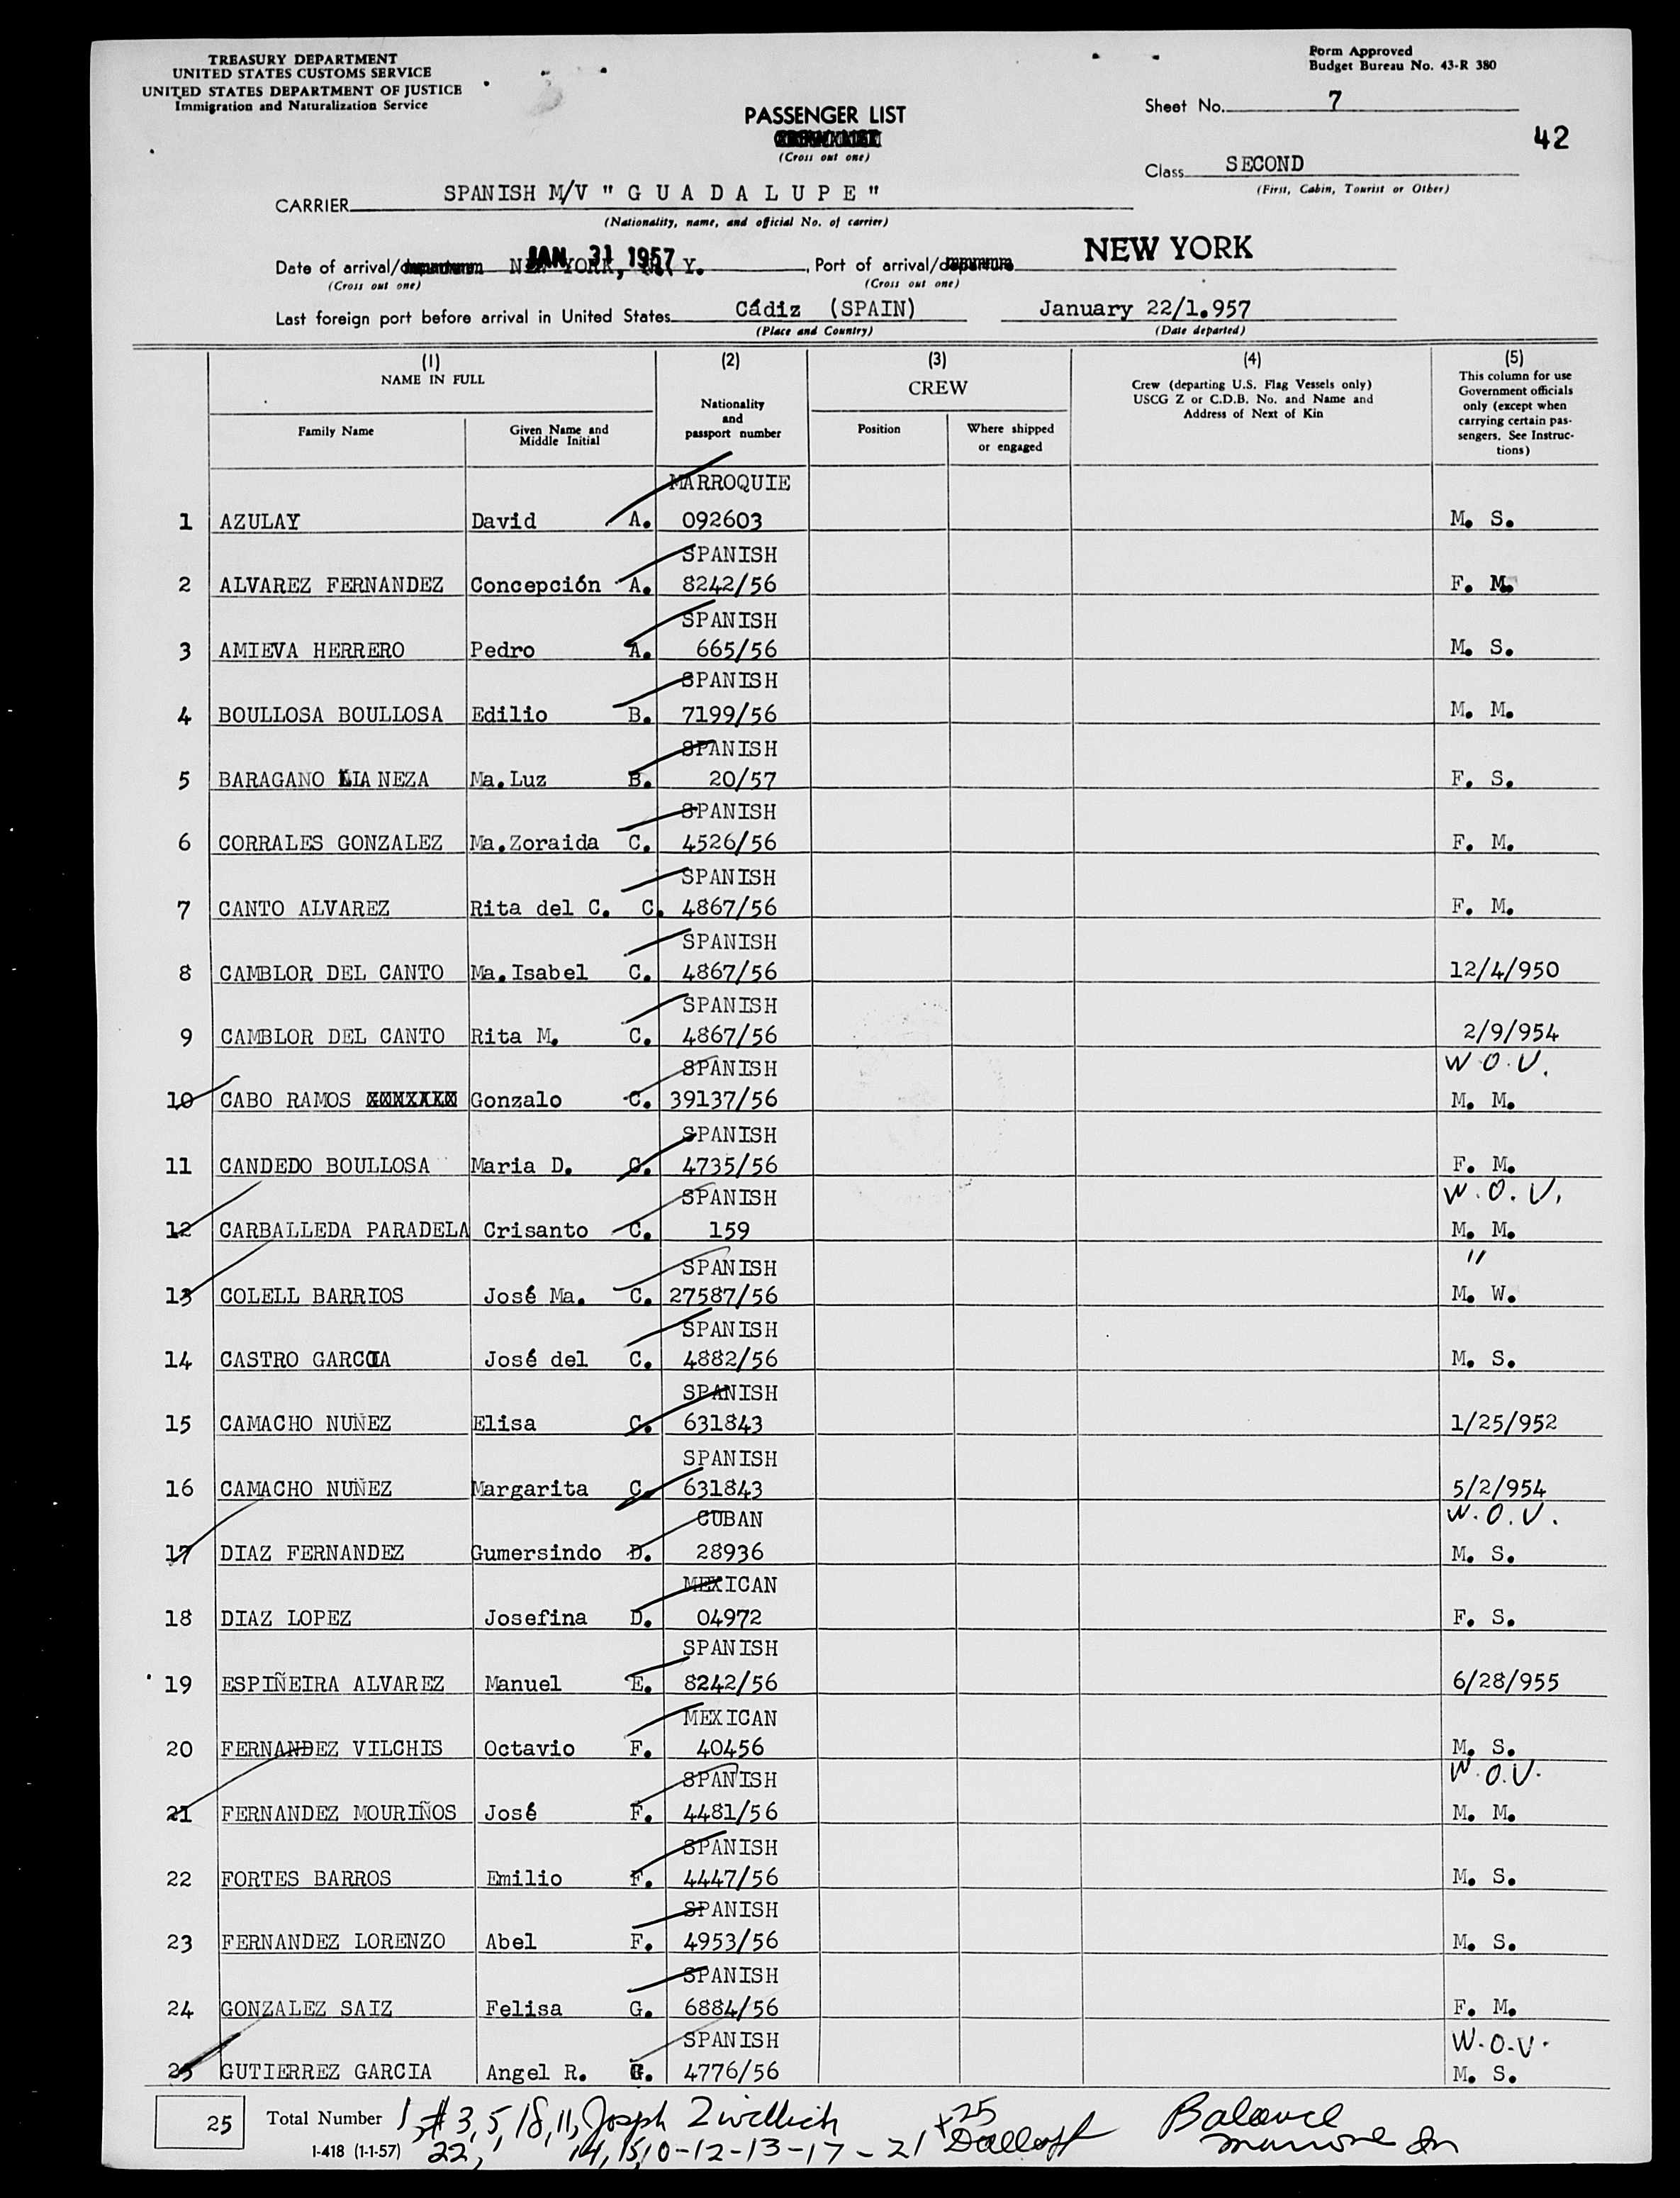 TREASURY DEPARTMENT
UNITED STATES CUSTOMS SERVICE
UNITED STATES DEPARTMENT OF JUSTICE
Immigration and Naturalization Service
Form Approved
Budget Bureau No. 43-R 380
PASSENGER LIST
(Cross out one)
Sheet No. 7
42
Class SECOND
(First, Cabin, Tourist or Other)
CARRIER SPANISH M/V " G U A D A L U P E "
(Nationality, name, and official No. of carrier)
Date of arrival/ NEW YORK, N. Y. JAN 31 1957, Port of arrival/departure NEW YORK
(Cross out one) (Cross out one)
Last foreign port before arrival in United States Cádiz (SPAIN) January 22/1.957
(Place and Country) (Date departed)
(1) (2) (3) (4) (5)
NAME IN FULL
Family Name
Given Name and Middle Initial
Nationality and passport number
CREW
Position
Where shipped or engaged
Crew (departing U.S. Flag Vessels only)
USCG Z or C.D.B. No. and Name and
Address of Next of Kin
This column for use
Government officials
only (except when
carrying certain pas-
sengers. See Instruc-
tions)
MARROQUIE
1 AZULAY David A. 092603 M. S.
SPANISH
2 ALVAREZ FERNANDEZ Concepción A. 8242/56 F. M.
SPANISH
3 AMIEVA HERRERO Pedro A. 665/56 M. S.
SPANISH
4 BOULLOSA BOULLOSA Edilio B. 7199/56 M. M.
SPANISH
5 BARAGANO LLANEZA Ma.Luz B. 20/57 F. S.
SPANISH
6 CORRALES GONZALEZ Ma.Zoraida C. 4526/56 F. M.
SPANISH
7 CANTO ALVAREZ Rita del C. C. 4867/56 F. M.
SPANISH
8 CAMBLOR DEL CANTO Ma.Isabel C. 4867/56 12/4/950
SPANISH
9 CAMBLOR DEL CANTO Rita M. C. 4867/56 2/9/954
SPANISH W.O.V.
10 CABO RAMOS Gonzalo C. 39137/56 M. M.
SPANISH
11 CANDEDO BOULLOSA Maria D. C. 4735/56 F. M.
SPANISH W.O.V.
12 CARBALLEDA PARADELA Crisanto C. 159 M. M.
SPANISH "
13 COLELL BARRIOS José Ma. C. 27587/56 M. W.
SPANISH
14 CASTRO GARCIA José del C. 4882/56 M. S.
SPANISH
15 CAMACHO NUÑEZ Elisa C. 631843 1/25/952
SPANISH
16 CAMACHO NUÑEZ Margarita C. 631843 5/2/954
CUBAN W.O.V.
17 DIAZ FERNANDEZ Gumersindo D. 28936 M. S.
MEXICAN
18 DIAZ LOPEZ Josefina D. 04972 F. S.
SPANISH
19 ESPIÑEIRA ALVAREZ Manuel E. 8242/56 6/28/955
MEXICAN
20 FERNANDEZ VILCHIS Octavio F. 40456 M. S.
SPANISH W.O.V.
21 FERNANDEZ MOURIÑOS José F. 4481/56 M. M.
SPANISH
22 FORTES BARROS Emilio F. 4447/56 M. S.
SPANISH
23 FERNANDEZ LORENZO Abel F. 4953/56 M. S.
SPANISH
24 GONZALEZ SAIZ Felisa G. 6884/56 F. M.
SPANISH W.O.V.
25 GUTIERREZ GARCIA Angel R. G. 4776/56 M. S.
25 Total Number 1, #3, 5, 18, 11, Joseph Zwillich +25 Balance
I-418 (1-1-57) 22, 14, 15, 10-12-13-17-21